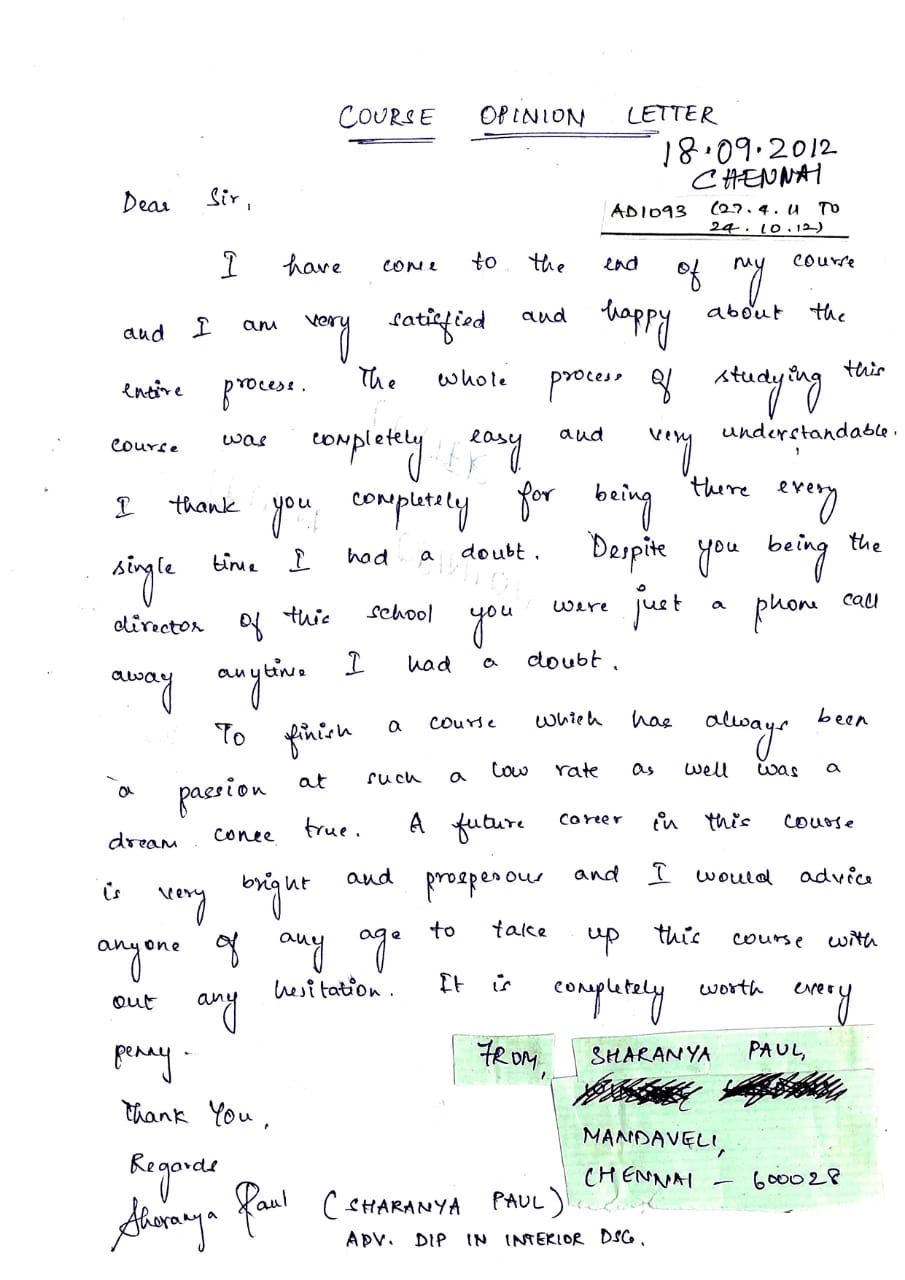 COURSE OPINION LETTER
18.09.2012
CHENNAI
Dear Sir,
AD1093 (27.4.11 TO
24.10.12)
I have come to the end of my course
and I am very satisfied and happy about the
entire process. The whole process of studying this
course was completely easy and very understandable.
I thank you completely for being there every
single time I had a doubt. Despite you being the
director of this school you were just a phone call
away anytime I had a doubt.
To finish a course which has always been
a passion at such a low rate as well was a
dream come true. A future career in this course
is very bright and prosperous and I would advice
anyone of any age to take up this course with
out any hesitation. It is completely worth every
penny.
FROM,
SHARANYA PAUL,
MANDAVELI,
CHENNAI - 600028
Thank You,
Regards
Sharanya Paul (SHARANYA PAUL)
ADV. DIP IN INTERIOR DSG.